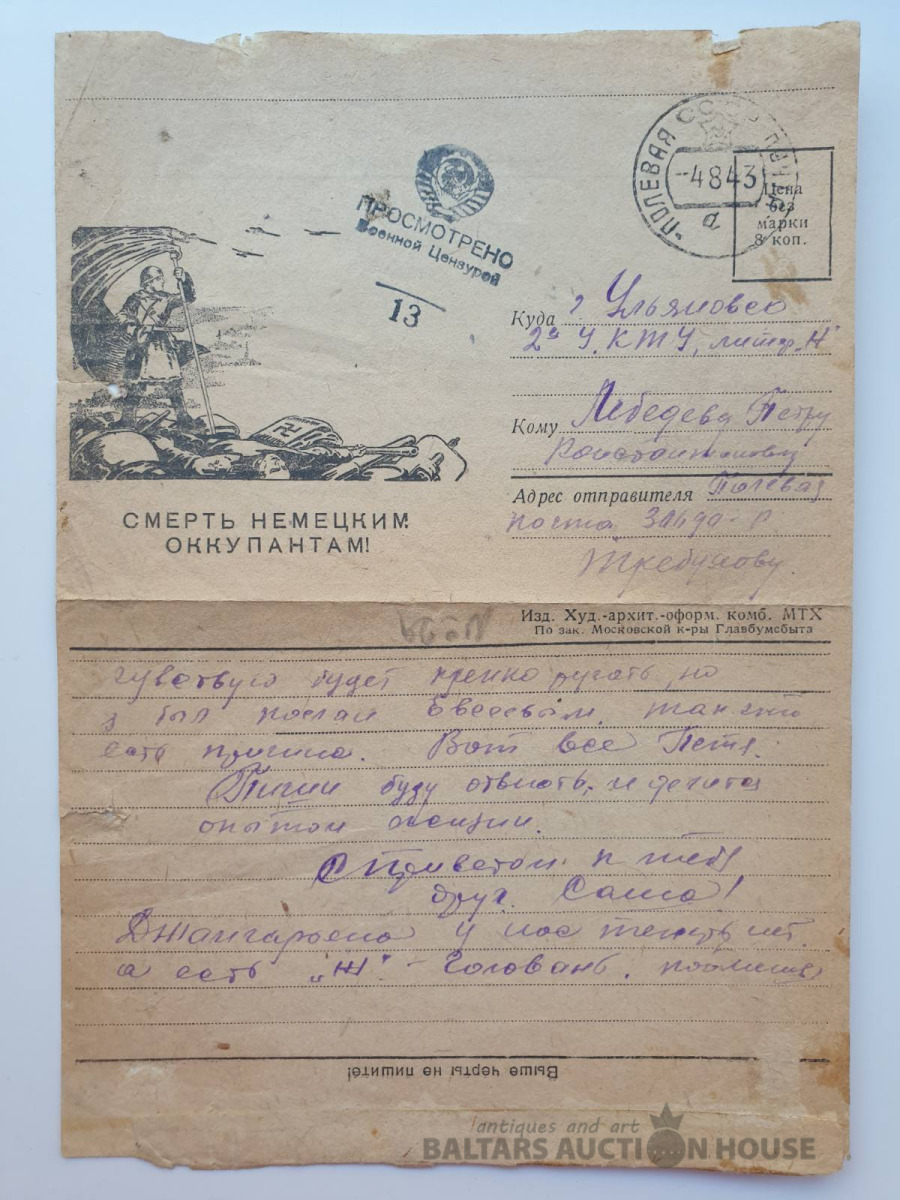 ПОЛЕВАЯ ПОЧТА
-4843
а
Цена
без
марки
8 коп.
ПРОСМОТРЕНО
Военной Цензурой
13
Куда г. Ульяновск
2е У.КТУ, литер „Н"
Кому Лебедеву Петру
Константиновичу
Адрес отправителя Полевая
почта
СМЕРТЬ НЕМЕЦКИМ
ОККУПАНТАМ!
Изд. Худ.-архит.-оформ. комб. МТХ
По зак. Московской к-ры Главбумсбыта
чувствую будет крепко ругать, но
я был послан так что
есть причина. Вот все Петя.
Пиши буду отвечать, и делится
опытом
С Приветом к тебе
друг. Саша!
у нас теперь нет
а есть „Ж" - Головань.
Выше черты не пишите!
antiques and art
BALTARS AUCTION HOUSE